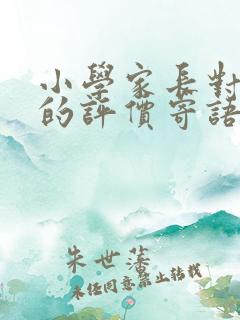 小學家長對
的評價寄語
朱世藩
未经同意禁止转载